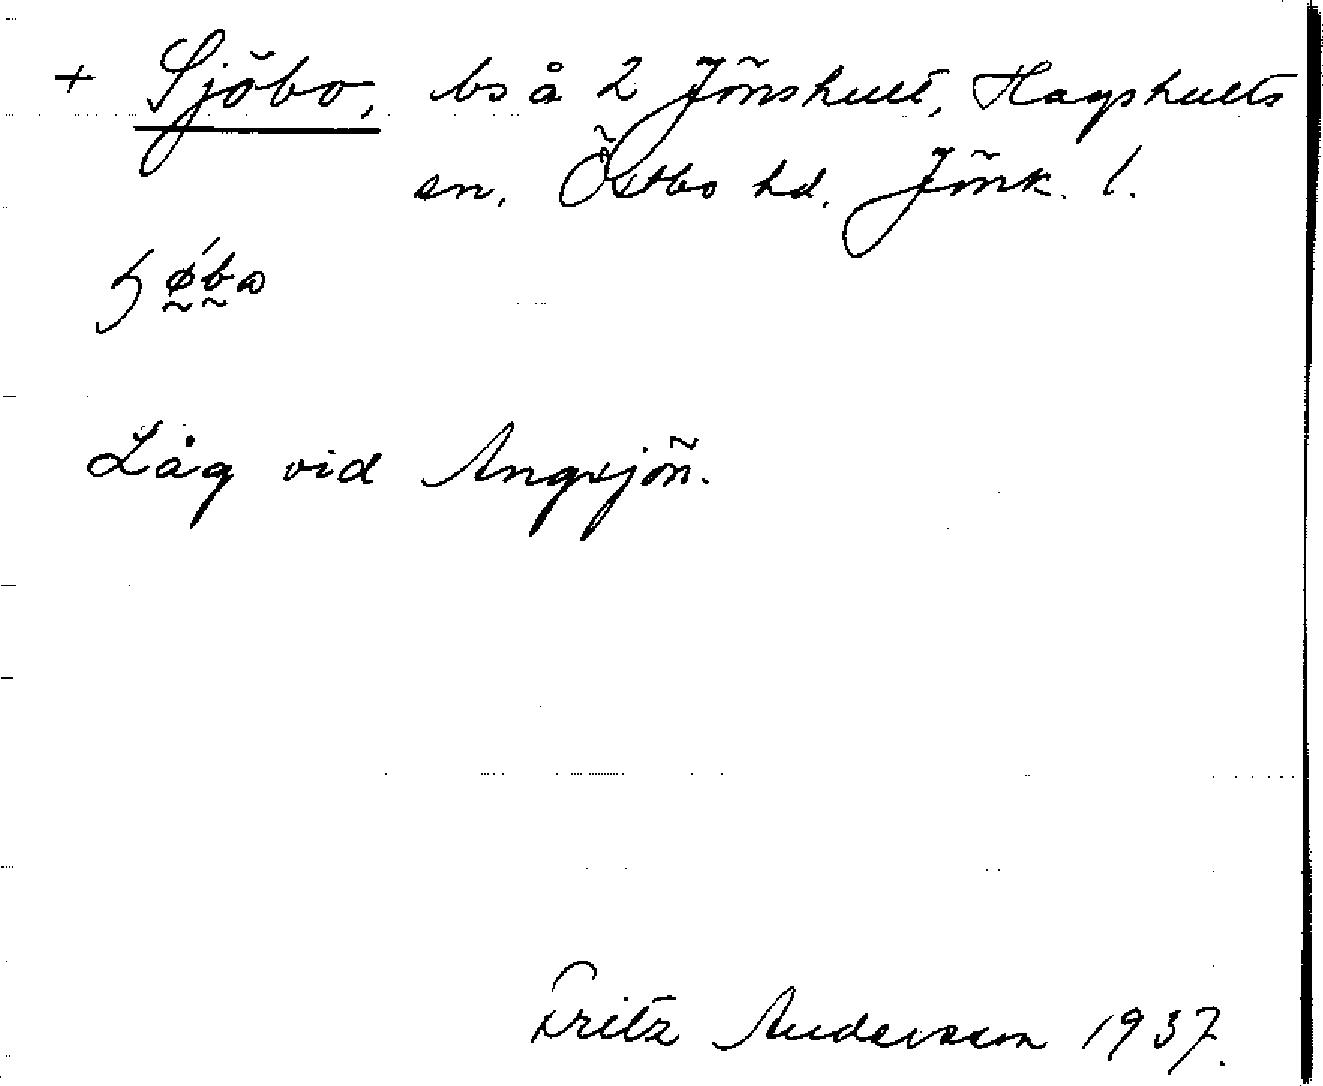 + Sjöbo, bs å 2 Jönshult, Hagshults
sn, Östbo hd. Jönk. l.
Låg vid Angsjön.
Fritz Andersson 1937.